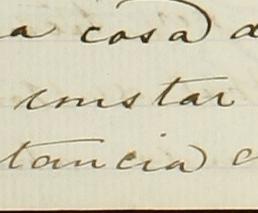 a cosa d
constar
tancia